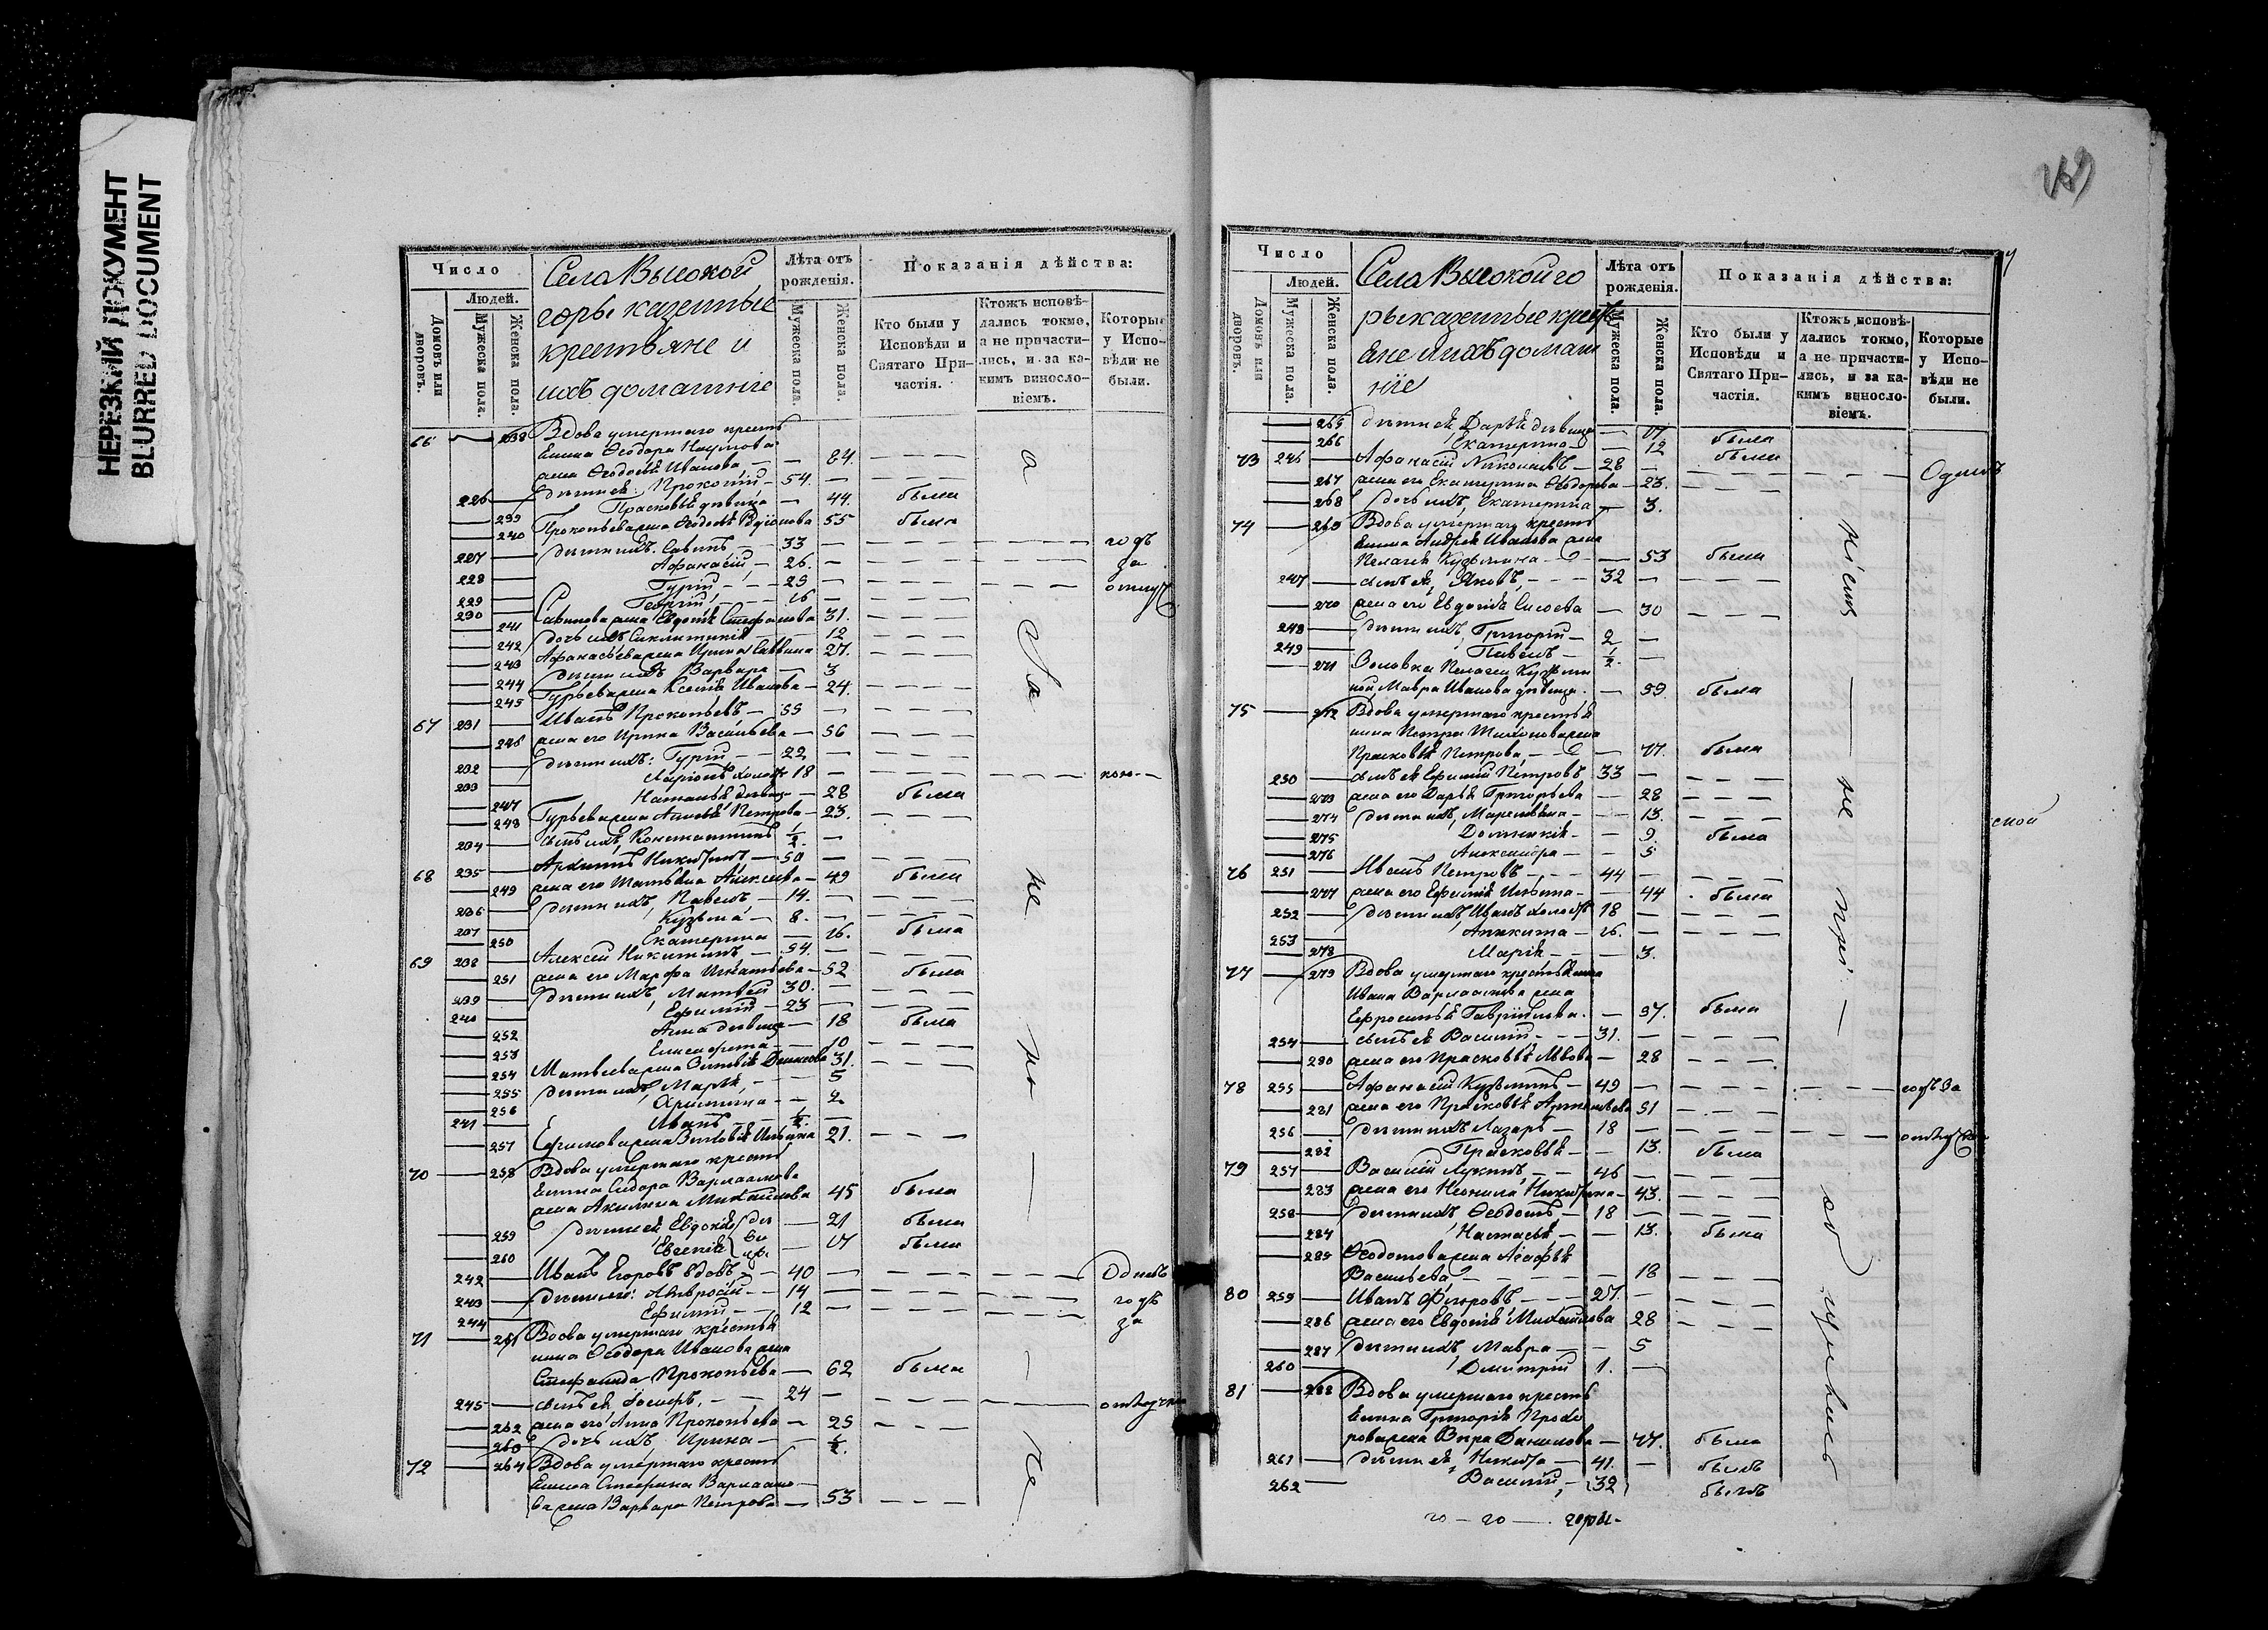 НЕРЕЗКИЙ ДОКУМЕНТ
BLURRED DOCUMENT
Число
Людей.
Домовъ или дворовъ.
Мужеска пола.
Женска пола.
Села Высокой
горы казенные
крестьяне и
ихъ домашніе
Лѣта отъ рожденія.
Мужеска пола.
Женска пола.
Показанія дѣйства:
Кто были у Исповѣди и Святаго Причастія.
Ктожъ исповѣдались токмо, а не причастились, и за какимъ винословіемъ.
Которые у Исповѣди не были.
66 238 Вдова умершаго кресть
янина Ѳеодора Наумова
жена Ѳеодосья Иванова 84.
226 дѣти ея: Прокопій 54.
239 Прасковья дѣвица 44. была
240 Прокопьева жена Ѳеодосья Родіонова 55 была
227 дѣти ихъ: Савинъ 33 годъ
228 Афанасій 26. за
229 Гурій 23 отлуч
230 Георгій 16
241 Савинова жена Евдокія Стефанова 31.
242 дочь ихъ Синклитикія 12
243 Афанасьева жена Ирина Саввина 27.
244 дѣти ихъ Варвара 3
245 Гурьева жена Ксенія Иванова 24.
67 231 Иванъ Прокопьевъ 55
246 жена его Ирина Васильева 56
232 дѣти ихъ: Гурій 22
233 Ларіонъ холостъ 18
247 Наталья дѣвица 28 была
248 Гурьева жена Анисья Петрова 23.
234 сынъ ихъ, Константинъ ½.
68 235 Архипъ Никитинъ 50
249 жена его Татьяна Алексеева 49 была
236 дѣти ихъ, Павелъ 14.
237 Кузьма 8.
250 Екатерина 16. была
69 238 Алексей Никитинъ 54.
251 жена его Марфа Игнатьева 52 была
239 дѣти ихъ, Матвей 30.
240 Ефимій 23
252 Анна дѣвица 18 была
253 Елисавета 10
254 Матвеева жена Зиновія Денисова 31.
255 дѣти ихъ Марья, 5
256 Христина 2
241 Иванъ ½.
257 Ефимова жена Зиновія Ильина 21.
70 258 Вдова умершаго кресть
янина Сидора Варлаамова
жена Акилина Михайлова 45 была
259 дѣти ея Евдокія 21 была
260 Евгенія 17 была
242 Иванъ Егоровъ вдовъ 40 Одинъ
243 дѣти его: Амвросій 14 годъ
244 Ефимій 12 за
71 261 Вдова умершаго крестья
нина Ѳеодора Иванова жена
Стефанида Прокопьева 62 была
245 сынъ ея Іосифъ, 24 отлучкою
262 жена его Анна Прокопьева 25
263 дочь ихъ, Ирина ½.
72 264 Вдова умершаго кресть
янина Стефана Варлаамо
ва жена Варвара Петрова 53
Число
Людей.
Домовъ или дворовъ.
Мужеска пола.
Женска пола.
Села Высокой го
ры казенные кресть
яне и ихъ домаш
ніе
Лѣта отъ рожденія.
Мужеска пола.
Женска пола.
Показанія дѣйства:
Кто были у Исповѣди и Святаго Причастія.
Ктожъ исповѣдались токмо, а не причастились, и за какимъ винословіемъ.
Которые у Исповѣди не были.
265 дѣти ея Дарья дѣвица 17 была
266 Екатерина 12 была
73 246 Афанасій Никоновъ 28 Одинъ
267 жена его Екатерина Ѳеодорова 23.
268 дочь ихъ, Екатерина 3.
74 269 Вдова умершаго кресть
янина Андрея Иванова жена
Пелагея Кузьмина 53 была
247 сынъ ея, Яковъ, 32
270 жена его Евдокія Сысоева 30
248 дѣти ихъ, Григорій 2
249 Павелъ ½.
271 Золовка Пелагеи Кузьми
ной, Мавра Иванова дѣвица. 59 была
75 272 Вдова умершаго крестья
нина Петра Тихонова жена
Прасковья Петрова, 77. была
250 сынъ ея Ефимій Петровъ 33
273 жена его Дарья Григорьева 28
274 дѣти ихъ, Маремьяна 13.
275 Домникія 9. была
276 Александра 5
76 251 Иванъ Петровъ 44
277 жена его Ефимія Ильина 44 была
252 дѣти ихъ Иванъ холостъ 18
253 Аникита 16.
278 Марія 3.
77 279 Вдова умершаго крестьянина
Ивана Варлаамова жена
Ефросинья Гавріилова. 57. была
254 сынъ ея Василій 31.
280 жена его Прасковья Львова 28
78 255 Афанасій Кузьминъ 49 годъ за
281 жена его Прасковья Артемьева 51
256 дѣти ихъ Лазарь 18 отлучкою
282 Прасковья 13. была
79 257 Василій Лукинъ 46
283 жена его Неонила Никитина 43.
258 дѣти ихъ Ѳеодотъ 18
284 Настасья 13. была
285 Ѳеодотова жена Агафья
Васильева 18
80 259 Иванъ Флоровъ 27.
286 жена его Евдокія Михайлова 28
287 дѣти ихъ, Мавра 5
260 Димитрій 1.
81 288 Вдова умершаго кресть
янина Григорія Прохо
рова жена Вѣра Данилова 77. была
261 дѣти ея, Никита 41. былъ
262 Василій, 32 былъ